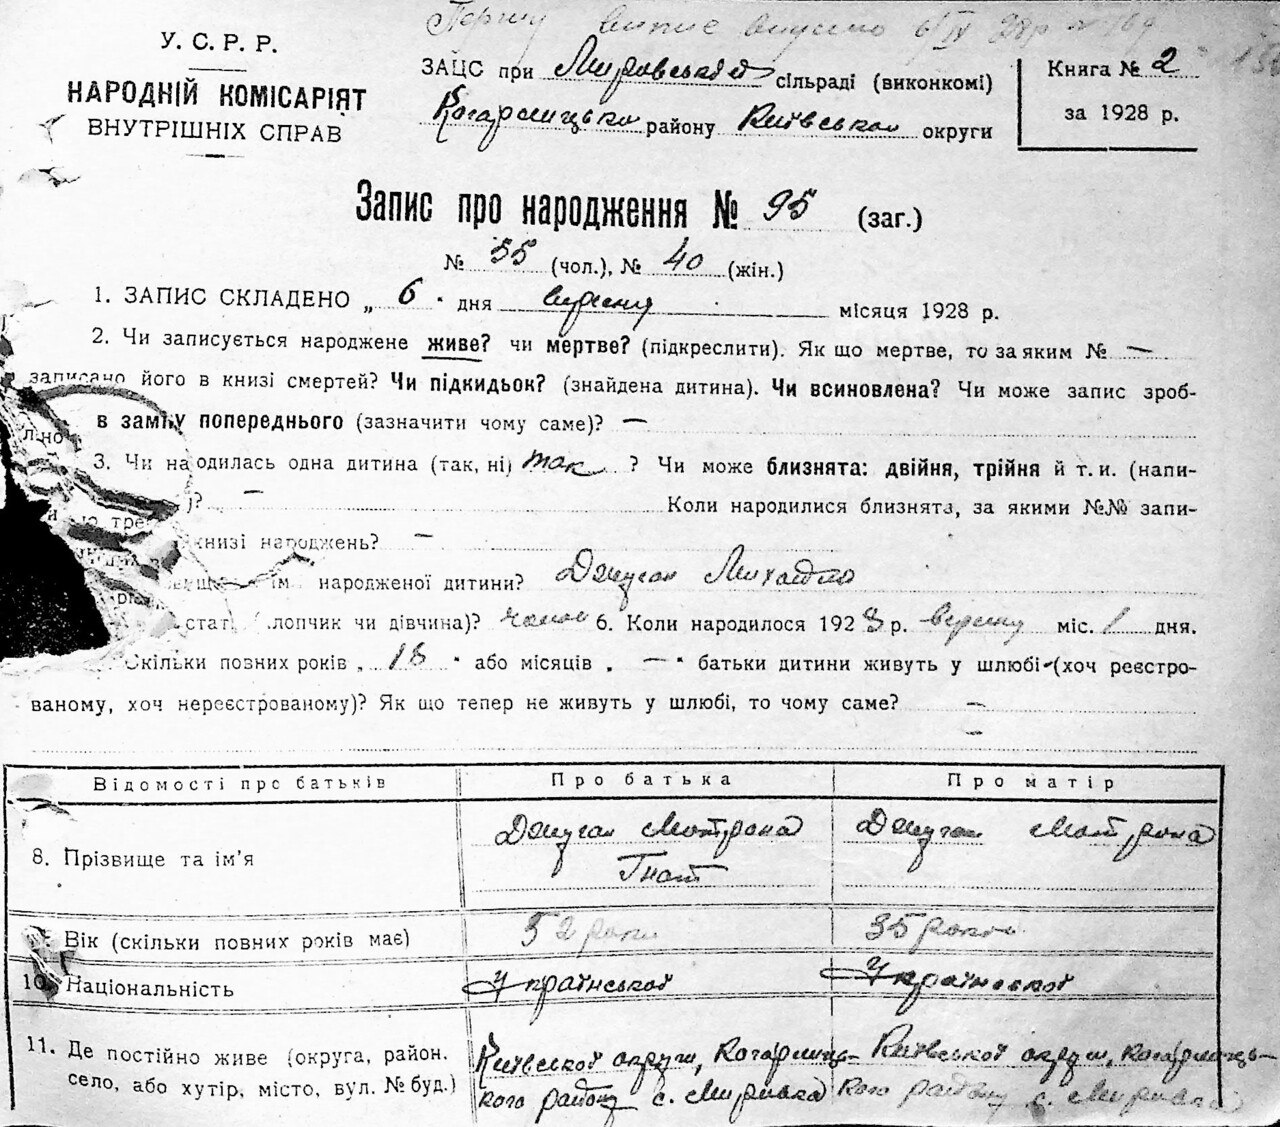 Першу випис видано 6/IV 28р №109
У. С. Р. Р.
НАРОДНІЙ КОМІСАРІЯТ
ВНУТРІШНІХ СПРАВ
ЗАЦС при Мировській сільраді (виконкомі)
Кагарлицько району Київськой округи
Книга № 2
за 1928 р.
Запис про народження № 95 (заг.)
№ 55 (чол.), № 40 (жін.)
1. ЗАПИС СКЛАДЕНО „ 6 “ дня вересня місяця 1928 р.
2. Чи записується народжене живе? чи мертве? (підкреслити). Як що мертве, то за яким № —
записано його в книзі смертей? Чи підкидьок? (знайдена дитина). Чи всиновлена? Чи може запис зроб-
лено в заміну попереднього (зазначити чому саме)? —
3. Чи народилась одна дитина (так, ні) так ? Чи може близнята: двійня, трійня й т. и. (напи-
)? — Коли народилися близнята, за якими №№ запи-
книзі народжень? —
ім народженої дитини? Джуган Михайло
стат лопчик чи дівчина)? 6. Коли народилося 1928 р. вересня міс. 1 дня.
Скільки повних років „ 18 “ або місяців „ — “ батьки дитини живуть у шлюбі (хоч реєстро-
ваному, хоч нереєстрованому)? Як що тепер не живуть у шлюбі, то чому саме? —
Відомості про батьків Про батька Про матір
8. Прізвище та ім’я Джуган Мотрона Гнат Джуган Мотрона
Вік (скільки повних років має) 52 роки 35 роков
10. Національність Української Української
11. Де постійно живе (округа, район. Київськой округи, Кагарлиць- Київськой округи, Кагарлиць-
село, або хутір, місто, вул. № буд.) кого району с. Мировка кого району с. Мировка